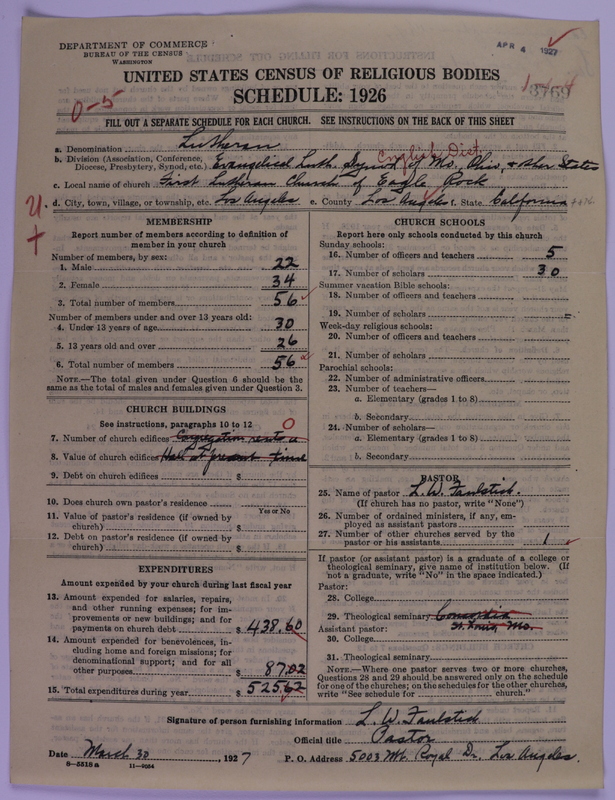 DEPARTMENT OF COMMERCE
BUREAU OF THE CENSUS
WASHINGTON
APR 4 1927
UNITED STATES CENSUS OF RELIGIOUS BODIES
SCHEDULE: 1926
0-5
FILL OUT A SEPARATE SCHEDULE FOR EACH CHURCH. SEE INSTRUCTIONS ON THE BACK OF THIS SHEET
a. Denomination Lutheran
English Dist.
b. Division (Association, Conference, Diocese, Presbytery, Synod, etc.) Evangelical Luth. Synod of Mo. Ohio, & other States
c. Local name of church First Lutheran Church of Eagle Rock
d. City, town, village, or township, etc. Los Angeles e. County Los Angeles f. State California
MEMBERSHIP
Report number of members according to definition of
member in your church
Number of members, by sex:
1. Male 22
2. Female 34
3. Total number of members 56
Number of members under and over 13 years old:
4. Under 13 years of age 30
5. 13 years old and over 26
6. Total number of members 56
NOTE.—The total given under Question 6 should be the
same as the total of males and females given under Question 3.
CHURCH BUILDINGS
See instructions, paragraphs 10 to 12
0
7. Number of church edifices Congregation rents a
8. Value of church edifices Hall at present time
9. Debt on church edifices $
10. Does church own pastor's residence
Yes or No
11. Value of pastor's residence (if owned by
church) $
12. Debt on pastor's residence (if owned by
church) $
EXPENDITURES
Amount expended by your church during last fiscal year
13. Amount expended for salaries, repairs,
and other running expenses; for im-
provements or new buildings; and for
payments on church debt $ 438.60
14. Amount expended for benevolences, in-
cluding home and foreign missions; for
denominational support; and for all
other purposes $ 87.02
15. Total expenditures during year $ 525.62
CHURCH SCHOOLS
Report here only schools conducted by this church
Sunday schools:
16. Number of officers and teachers 5
17. Number of scholars 30
Summer vacation Bible schools:
18. Number of officers and teachers
19. Number of scholars
Week-day religious schools:
20. Number of officers and teachers
21. Number of scholars
Parochial schools:
22. Number of administrative officers
23. Number of teachers—
a. Elementary (grades 1 to 8)
b. Secondary
24. Number of scholars—
a. Elementary (grades 1 to 8)
b. Secondary
PASTOR
25. Name of pastor L. W. Faulstick.
(If church has no pastor, write "None")
26. Number of ordained ministers, if any, em-
ployed as assistant pastors
27. Number of other churches served by the
pastor or his assistants 1
If pastor (or assistant pastor) is a graduate of a college or
theological seminary, give name of institution below. (If
not a graduate, write "No" in the space indicated.)
Pastor:
28. College
29. Theological seminary Concordia
Assistant pastor: St. Louis, Mo.
30. College
31. Theological seminary
NOTE.—Where one pastor serves two or more churches,
Questions 28 and 29 should be answered only on the schedule
for one of the churches; on the schedules for the other churches,
write "See schedule for church."
Signature of person furnishing information L. W. Faulstick
Official title Pastor
Date March 30, 1927 P. O. Address 5003 Mt. Royal Dr. Los Angeles.
8-5518 a 11-9084